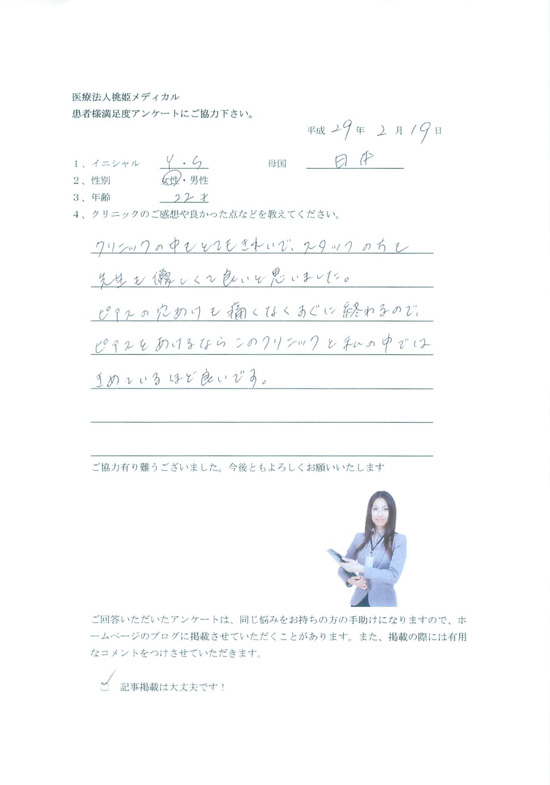 医療法人桃姫メディカル
患者様満足度アンケートにご協力下さい。
平成 29 年 2 月 19 日
1、イニシャル Y・S 母国 日本
2、性別 女性・男性
3、年齢 22才
4、クリニックのご感想や良かった点などを教えてください。
クリニックの中もとてもきれいで、スタッフの方も
先生も優しくて良いと思いました。
ピアスの穴あけも痛くなくすぐに終わるので、
ピアスをあけるならこのクリニックと私の中では
きめているほど良いです。
ご協力有り難うございました。今後ともよろしくお願いいたします
ご回答いただいたアンケートは、同じ悩みをお持ちの方の手助けになりますので、ホ
ームページのブログに掲載させていただくことがあります。また、掲載の際には有用
なコメントをつけさせていただきます。
記事掲載は大丈夫です！